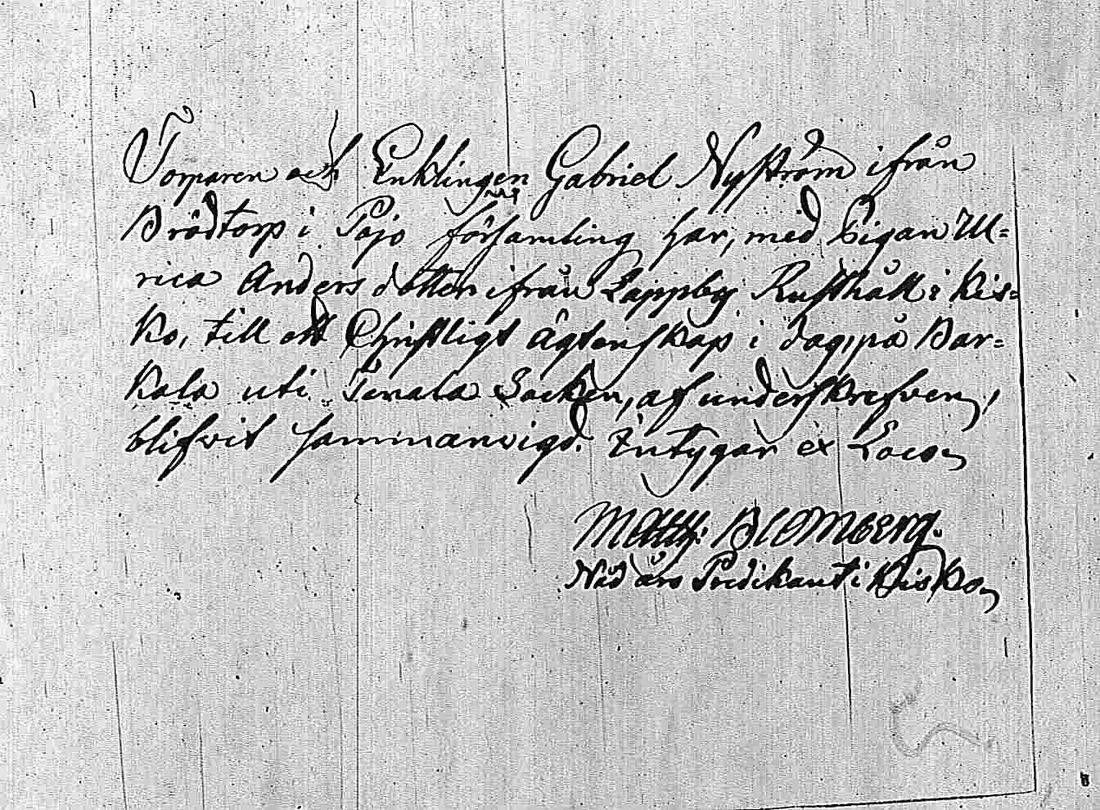 Torparen och Enklingen Gabriel Nyström ifrån
Brödtorp i Pojo församling har, med Pigan Ul=
rica Anders dotter ifrån Lappby Rusthåll i Kis=
ko, till ett Christligt Ägtenskap i dag, på Bar=
kala uti Tenala Socken, af underskrefven,
blifvit sammanvigd. Intygar ex Loco
Matth: Blomberg.
Nåd års Predikant i Kisko